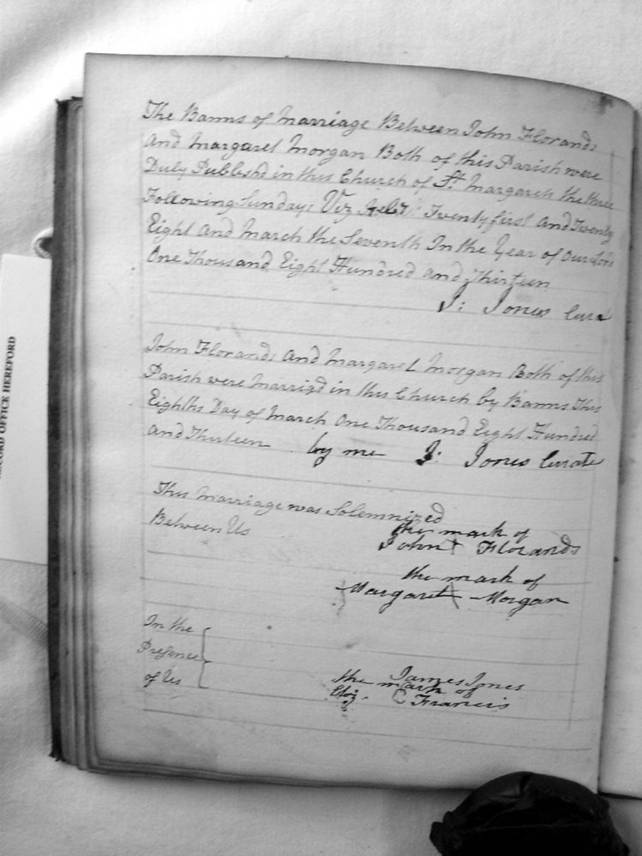 The Banns of Marriage Between John Florands
And Margaret Morgan Both of this Parish were
Duly Publeshd in this Church of St. Margarets the three
Following Sundays Viz Feb. Twenty first And Twenty
Eight And March the Seventh In the Year of Our Lord
One Thousand Eight Hundred And Thirteen
J: Jones Cura
John Florands And Margaret Morgan Both of this
Parish were Married in this Church by Banns This
Eighths Day of March One Thousand Eight Hundred
And Thirteen by me J: Jones Curate
This Marriage was Solemnized
Between Us
the mark of
John + Florands
the mark of
Margaret Morgan
In the
Presence
of Us
James Jones
the mark of
Eliz. Francis
RECORD OFFICE HEREFORD